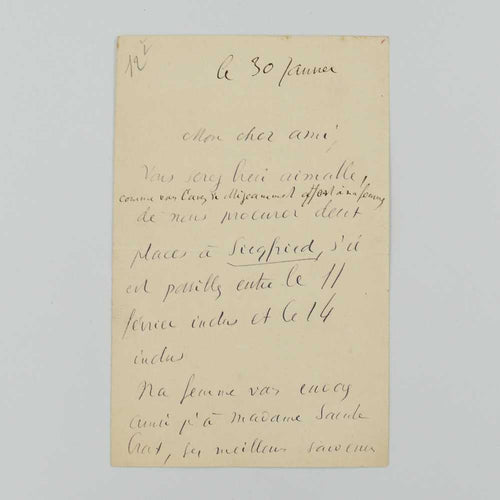 12
le 30 Janvier
Mon cher ami,
Vous serez bien aimable,
comme vous l'avez offert à ma femme
de nous procurer deux
places à Siegfried, s'il
est possible entre le 11
février inclus et le 14
inclus
Ma femme vous envoie
ainsi qu'à madame
ses meilleurs souvenirs